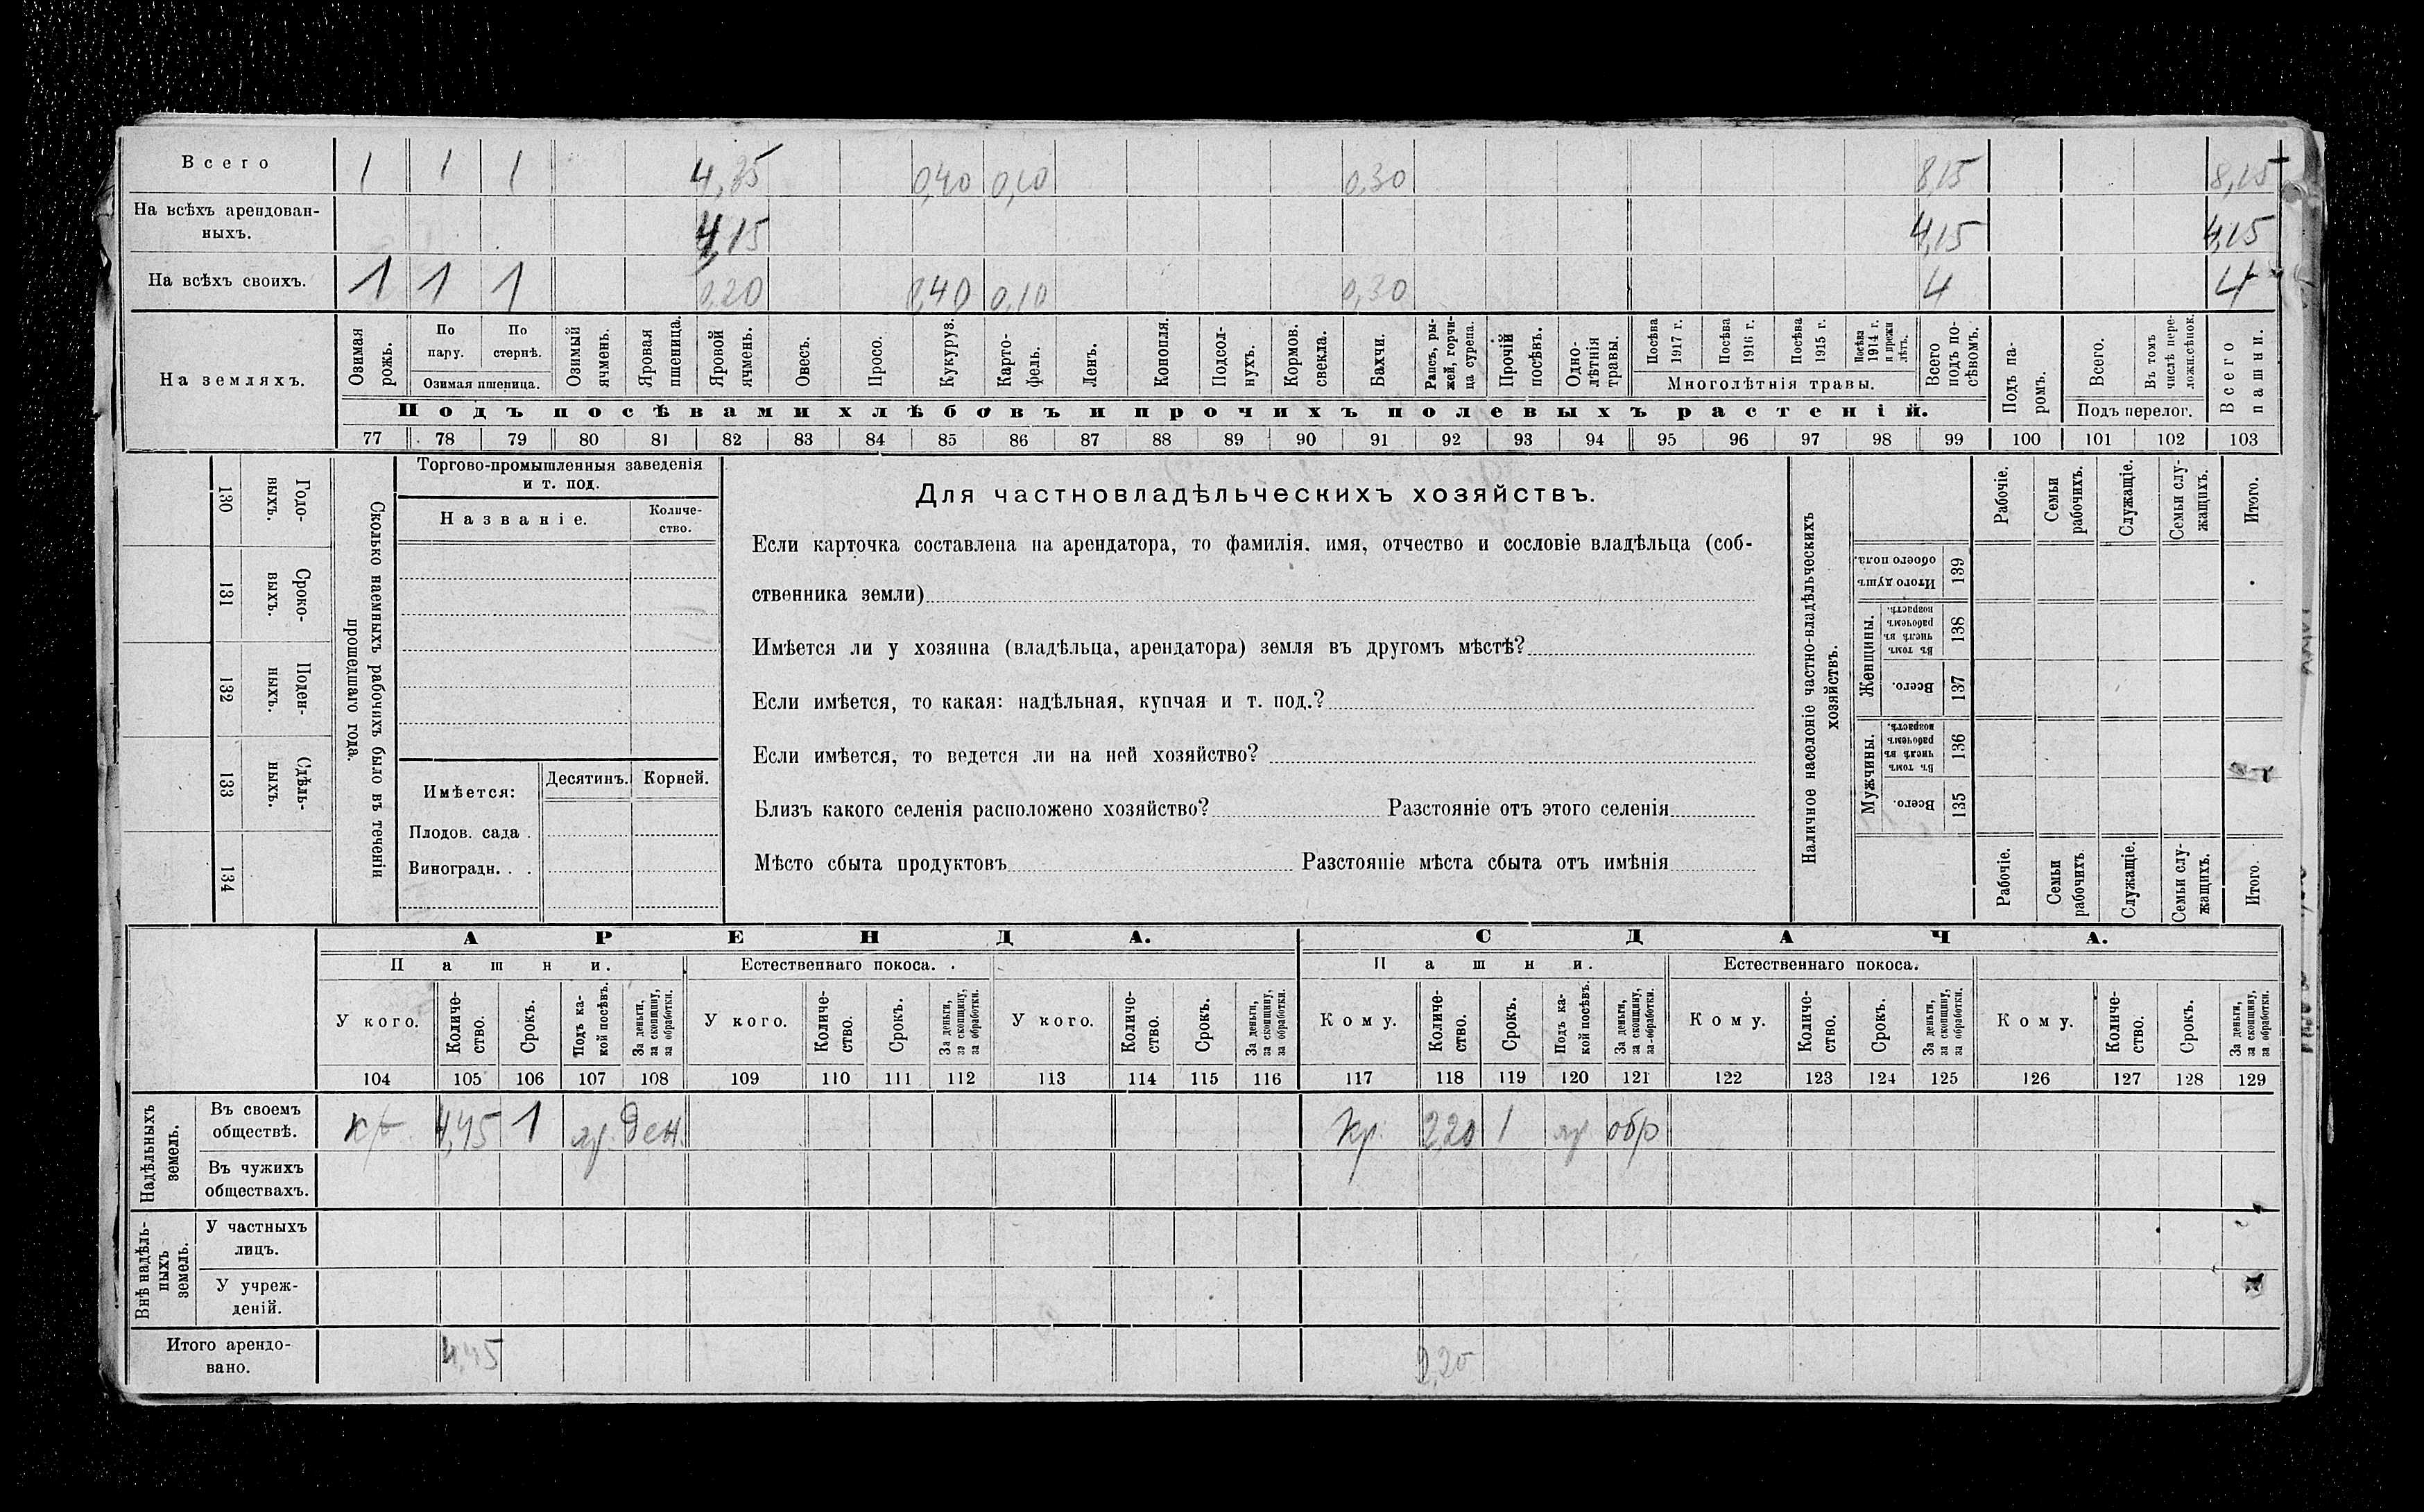 Всего 1 1 1 4,35 0,40 0,10 0,30 8,15 8,15
На всѣхъ арендован-
ныхъ. 4,15 4,15 4,15
На всѣхъ своихъ. 1 1 1 0,20 0,40 0,10 0,30 4 4
На земляхъ.
Озимая рожь.
По пару.
По стернѣ.
Озимая пшеница.
Озимый ячмень.
Яровая пшеница.
Яровой ячмень.
Овесъ.
Просо.
Кукуруз.
Карто-
фель.
Ленъ.
Конопля.
Подсол-
нухъ.
Кормов. свекла.
Бахчи.
Рапсъ, ры-
жей, горчи-
ца сурепа.
Прочій посѣвъ.
Одно-
лѣтнія
травы.
Посѣва 1917 г.
Посѣва 1916 г.
Посѣва 1915 г.
Посѣва 1914 г. и прежн лѣтъ.
Многолѣтнія травы.
Всего подъ по-
сѣвомъ.
Подъ посѣвами хлѣбовъ и прочихъ полевыхъ растеній.
Подъ па-
ромъ.
Всего.
Въ томъ числѣ пере-
лож.сѣнок.
Подъ перелог.
Всего пашни.
77 78 79 80 81 82 83 84 85 86 87 88 89 90 91 92 93 94 95 96 97 98 99 100 101 102 103
130 Годо-
выхъ.
131 Сроко-
выхъ.
132 Поден-
ныхъ.
133 Сдѣль-
ныхъ.
134
Сколько наемныхъ рабочихъ было въ теченіи
прошедшаго года.
Торгово-промышленныя заведенія
и т. под.
Названіе.
Количе-
ство.
Имѣется: Десятинъ. Корней.
Плодов. сада .
Виноградн. . .
Для частновладѣльческихъ хозяйствъ.
Если карточка составлена на арендатора, то фамилія, имя, отчество и сословіе владѣльца (соб-
ственника земли)
Имѣется ли у хозяина (владѣльца, арендатора) земля въ другомъ мѣстѣ?
Если имѣется, то какая: надѣльная, купчая и т. под.?
Если имѣется, то ведется ли на ней хозяйство?
Близъ какого селенія расположено хозяйство? Разстояніе отъ этого селенія
Мѣсто сбыта продуктовъ Разстояніе мѣста сбыта отъ имѣнія
Наличное населеніе частно-владѣльческихъ
хозяйствъ.
Итого душъ обоего пола. 139
Женщины.
Въ томъ числѣ въ рабочемъ возрастѣ. 138
Всего. 137
Мужчины.
Въ томъ числѣ въ рабочемъ возрастѣ. 136
Всего. 135
Рабочіе.
Семьи рабочихъ.
Служащіе.
Семьи слу-
жащихъ.
Итого.
Рабочіе.
Семьи рабочихъ
Служащіе.
Семьи слу-
жащихъ.
Итого
АРЕНДА. СДАЧА.
Пашни. Естественнаго покоса. Пашни. Естественнаго покоса.
У кого.
Количе-
ство.
Срокъ.
Подъ ка-
кой посѣвъ.
За деньги,
за скопщину,
за обработки.
У кого.
Количе-
ство.
Срокъ.
За деньги,
за скопщину,
за обработки.
У кого.
Количе-
ство.
Срокъ.
За деньги,
за скопщину,
за обработки.
Кому.
Количе-
ство.
Срокъ.
Подъ ка-
кой посѣвъ.
За деньги,
за скопщину,
за обработки.
Кому.
Количе-
ство.
Срокъ.
За деньги,
за скопщину,
за обработки.
Кому.
Количе-
ство.
Срокъ.
За деньги,
за скопщину,
за обработки.
104 105 106 107 108 109 110 111 112 113 114 115 116 117 118 119 120 121 122 123 124 125 126 127 128 129
Надѣльныхъ
земель.
Въ своемъ
обществѣ. кр. 4,45 1 яр. ден. Кр. 2,20 1 яр обр
Въ чужихъ
обществахъ.
Внѣ надѣль-
ныхъ
земель.
У частныхъ
лицъ.
У учреж-
деній.
Итого арендо-
вано. 4,45 2,20